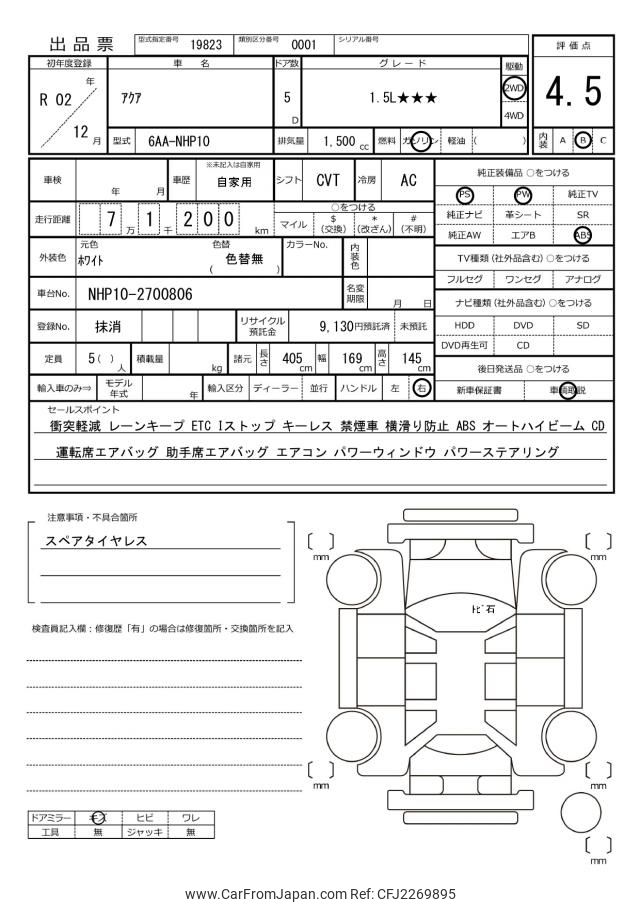 出品票 型式指定番号 19823 類別区分番号 0001 シリアル番号
評価点
4.5
初年度登録 車名 ドア数 グレード 駆動
R 02 年 12 月
ｱｸｱ
5 D
1.5L★★★
2WD
4WD
型式 6AA-NHP10 排気量 1,500 cc 燃料 ガソリン 軽油 ( )
内装 A B C
車検 年 月 車歴 ※未記入は自家用 自家用 シフト CVT 冷房 AC
純正装備品 ○をつける
PS PW 純正TV
純正ナビ 革シート SR
純正AW エアB ABS
走行距離 7 万 1 千 2 0 0 km
○をつける
マイル $ (交換) * (改ざん) # (不明)
外装色 元色 ﾎﾜｲﾄ 色替 ( 色替無 ) カラーNo. 内装色
TV種類 (社外品含む) ○をつける
フルセグ ワンセグ アナログ
車台No. NHP10-2700806 名変期限 月 日
ナビ種類 (社外品含む) ○をつける
HDD DVD SD
DVD再生可 CD
登録No. 抹消 リサイクル預託金 9,130円預託済 未預託
定員 5 ( ) 人 積載量 kg 諸元 長さ 405 cm 幅 169 cm 高さ 145 cm
後日発送品 ○をつける
新車保証書 車輌取説
輸入車のみ⇒ モデル年式 年 輸入区分 ディーラー 並行 ハンドル 左 右
セールスポイント
衝突軽減 レーンキープ ETC Iストップ キーレス 禁煙車 横滑り防止 ABS オートハイビーム CD
運転席エアバッグ 助手席エアバッグ エアコン パワーウィンドウ パワーステアリング
注意事項・不具合箇所
スペアタイヤレス
検査員記入欄：修復歴「有」の場合は修復箇所・交換箇所を記入
mm
mm
ﾄﾋﾞ石
mm
mm
mm
ドアミラー キズ ヒビ ワレ
工具 無 ジャッキ 無
www.CarFromJapan.com Ref: CFJ2269895